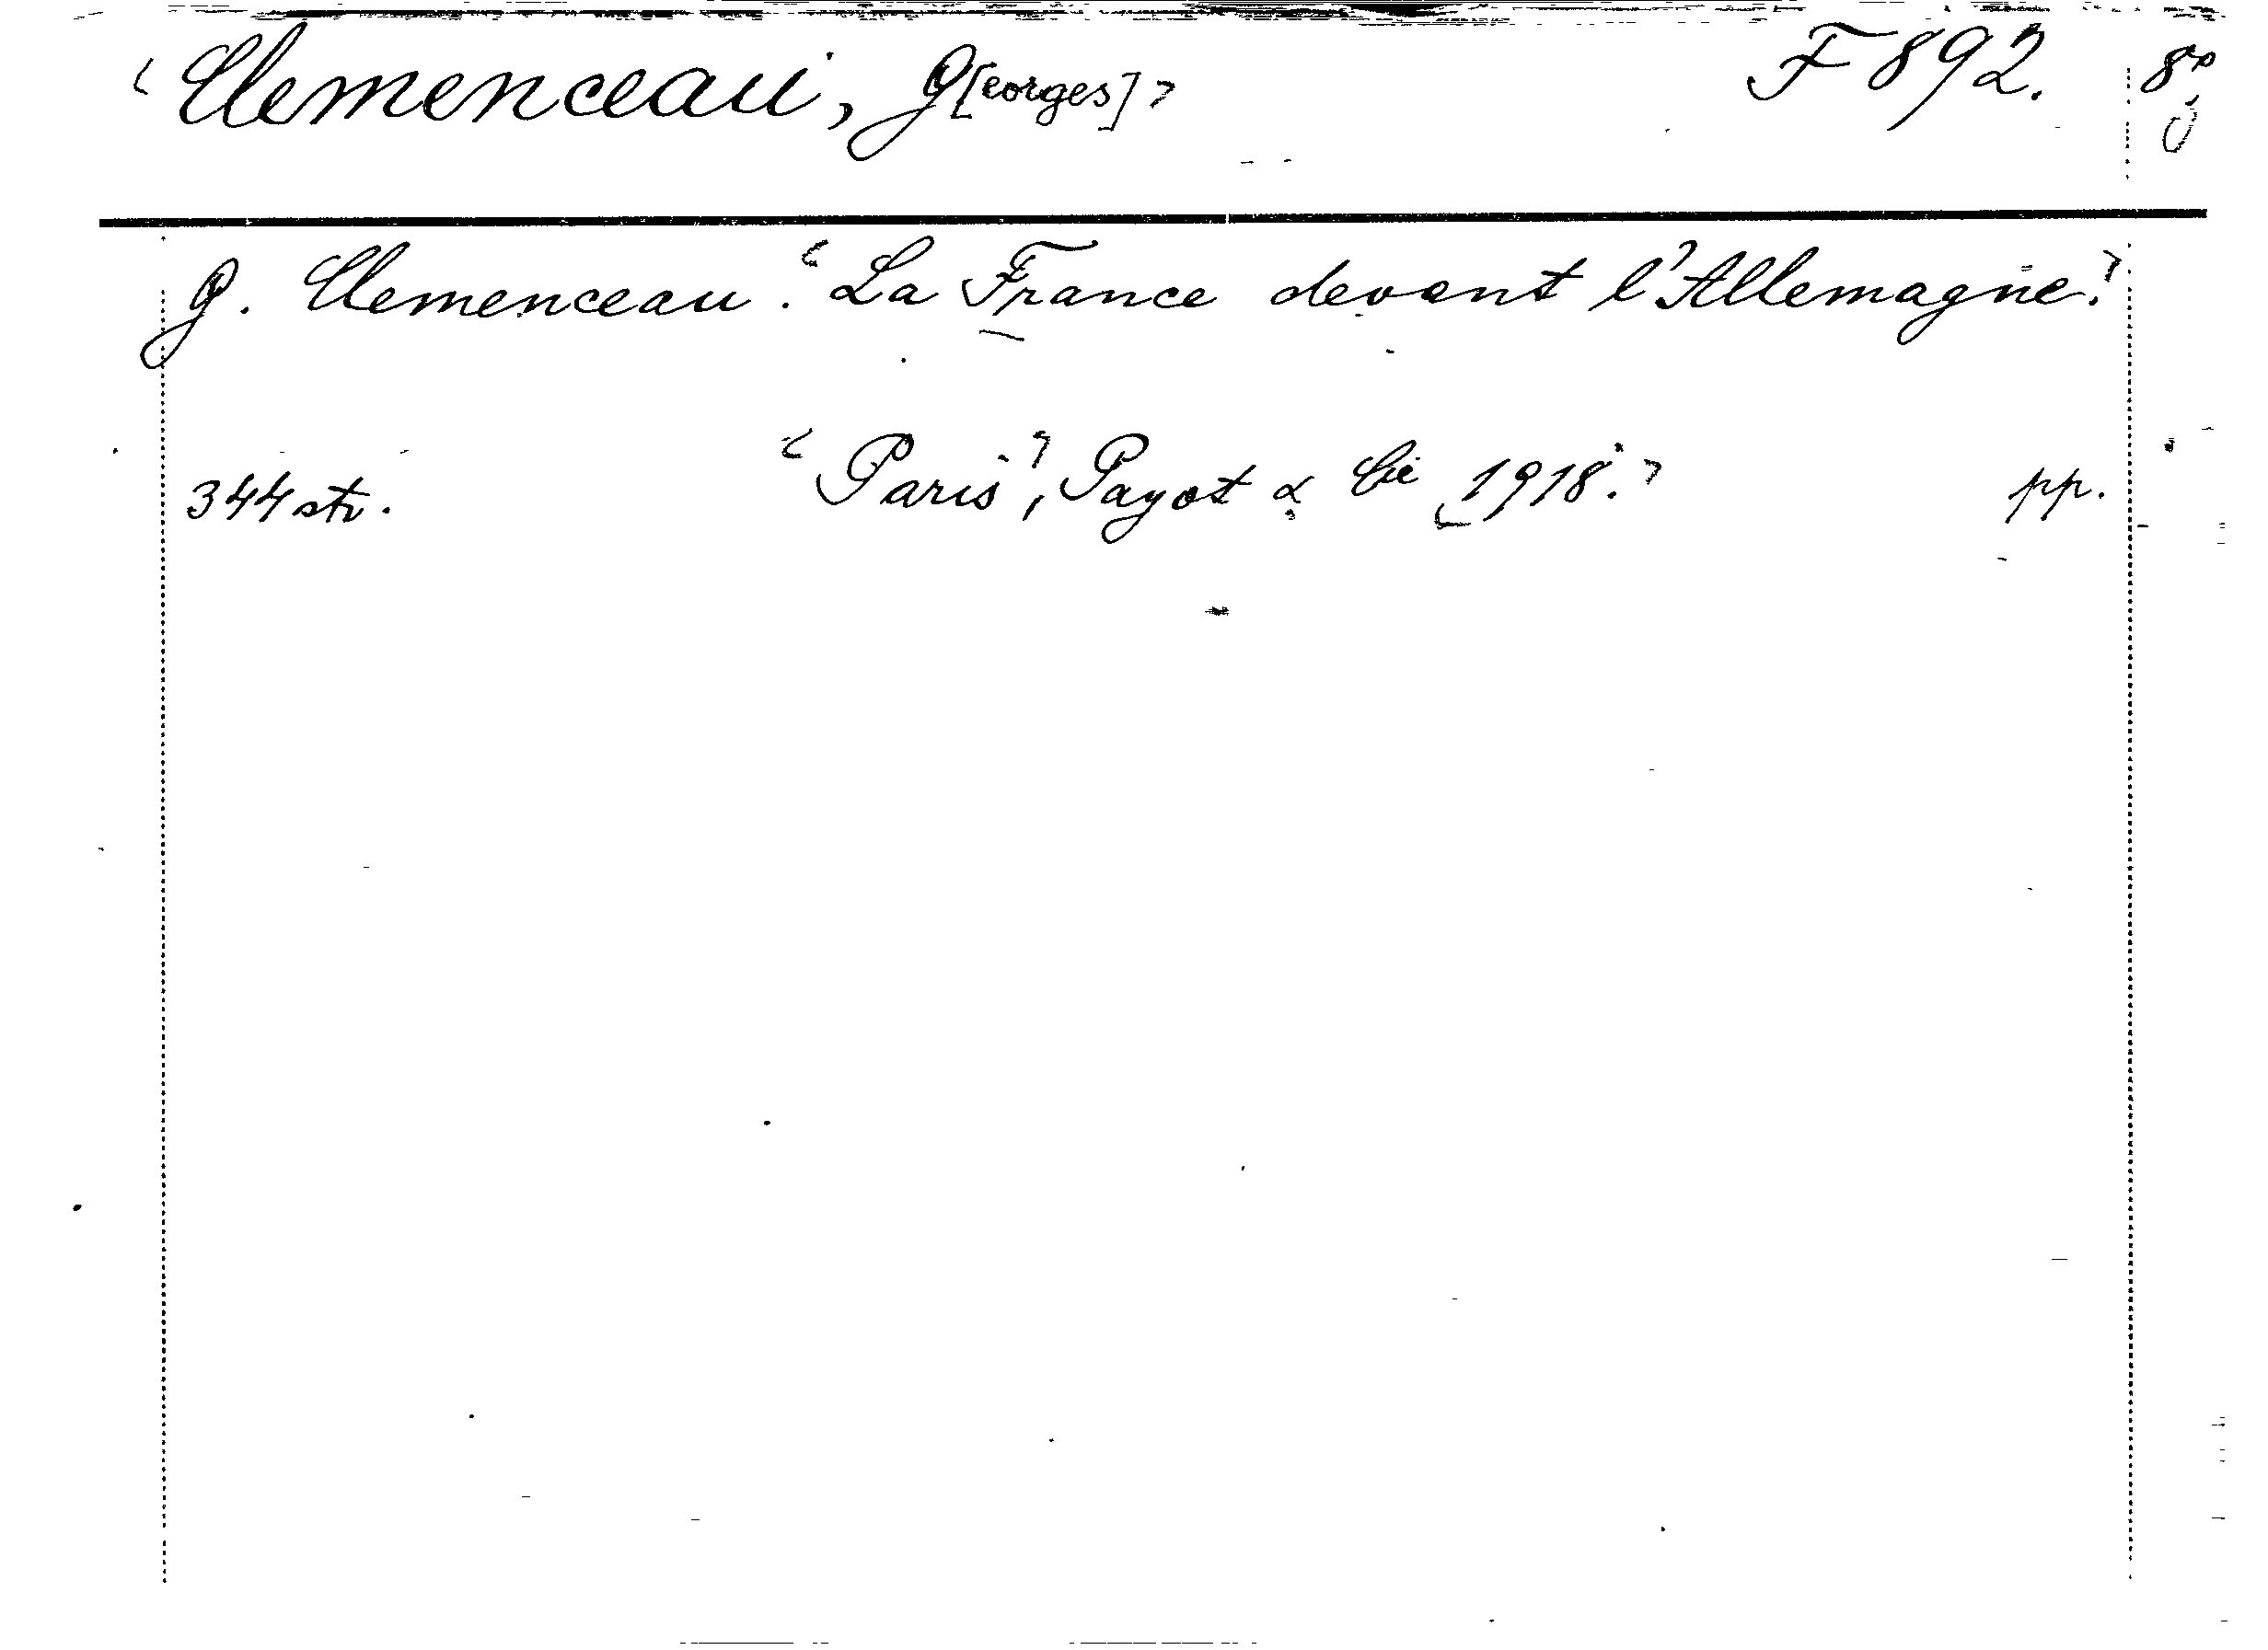 Clemenceau, G[eorges] F 892. 8°
G. Clemenceau. La France devant l'Allemagne.
344 str. Paris, Payot & Cie 1918. pp.